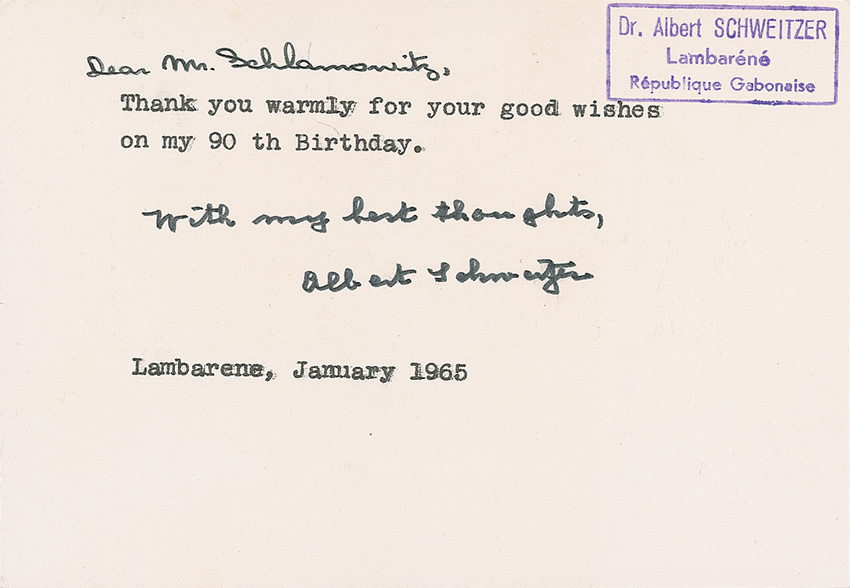 Dr. Albert SCHWEITZER
Lambaréné
République Gabonaise
Dear Mr. Schlamowitz,
Thank you warmly for your good wishes
on my 90 th Birthday.
With my best thoughts,
Albert Schweitzer
Lambarene, January 1965